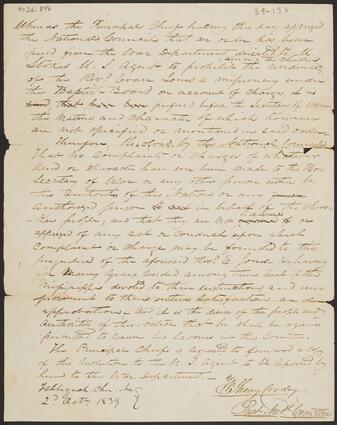 4026.846
39-136
Whereas the Principal Chief having this day apprized
this National Council that an order has been
from the War Department directed to M.
Stokes U. S. Agent to prohibit the residence
among the Cherokees
of the Revd Evan Jones a missionary under
the Baptist Board on account of charges
prefered before the Secretary of War
the nature and character of which however
are not specified or mentioned in said order
Therefore, Resolved by the National Council
That no Complaint or Charges of whatever
kind or character have ever been made to the Hon
Secretary of War or any other person either by
the Authority of this Nation or any
authorized person in behalf of the Chero-
kee people, and that they are not
aware
or
apprized of any act or conduct upon which
Complaint or Charge may be founded to the
prejudice of the aforesaid Revd E. Jones he having
for many years resided among them East of the
Mississippi devoted to their instruction and im-
provement to their entire satisfaction and
approbation. And it is the desire of the people and
Authorities of this Nation that he shall be again
permitted to resume his labours in this Country.
The Principal Chief is requested to forward a Copy
of this Resolution to the U. S. Agent to be reported by
him to the War Department.
Tahlequah Che. Na
2d Octr 1839